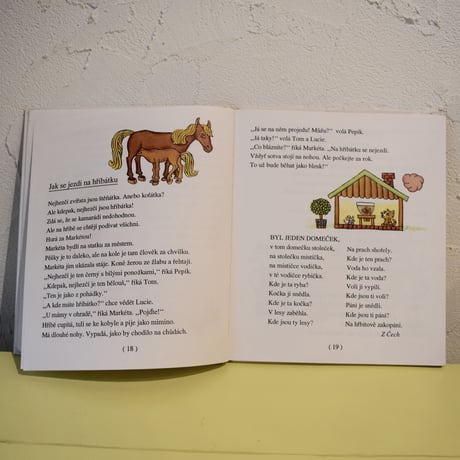 Jak se jezdí na hříbátku
Nejhezčí zvířata jsou štěňátka. Anebo koťátka?
Ale kdepak, nejhezčí jsou hříbátka!
Zdá se, že se kamarádi nedohodnou.
Ale na hříbě se chtějí podívat všichni.
Hurá za Markétou!
Markéta bydlí na statku za městem.
Pěšky je to daleko, ale na kole je tam člověk za chvilku.
Markéta jim ukázala stáje. Koně žerou ze žlabu a řehtají.
„Nejhezčí je ten černý s bílými ponožkami,“ říká Pepík.
„Kdepak, nejhezčí je ten běloušl,“ říká Tom.
„Ten je jako z pohádky.“
„A kde máte hříbátko?“ chce vědět Lucie.
„U mámy v ohradě,“ říká Markéta. „Pojďte!“
Hříbě cupitá, tulí se ke kobyle a pije jako mimino.
Má dlouhé nohy. Vypadá, jako by chodilo na chůdách.
( 18 )
„Já se na něm projedu! Můžu?“ volá Pepík.
„Já taky!“ volá Tom a Lucie.
„Co blázníte!“ říká Markéta. „Na hříbátku se nejezdí.
Vždyť sotva stojí na nohou. Ale počkejte za rok.
To už bude běhat jako blesk!“
BYL JEDEN DOMEČEK,
v tom domečku stoleček,
na stolečku mistička,
v mističce vodička,
v té vodičce rybička.
Kde je ta ryba?
Kočka ji snědla.
Kde je ta kočka?
V lesy zaběhla.
Kde jsou ty lesy?
Na prach shořely.
Kde je ten prach?
Voda ho vzala.
Kde je ta voda?
Voli ji vypili.
Kde jsou ti voli?
Páni je snědli.
Kde jsou ti páni?
Na hřbitově zakopáni.
Z Čech
( 19 )